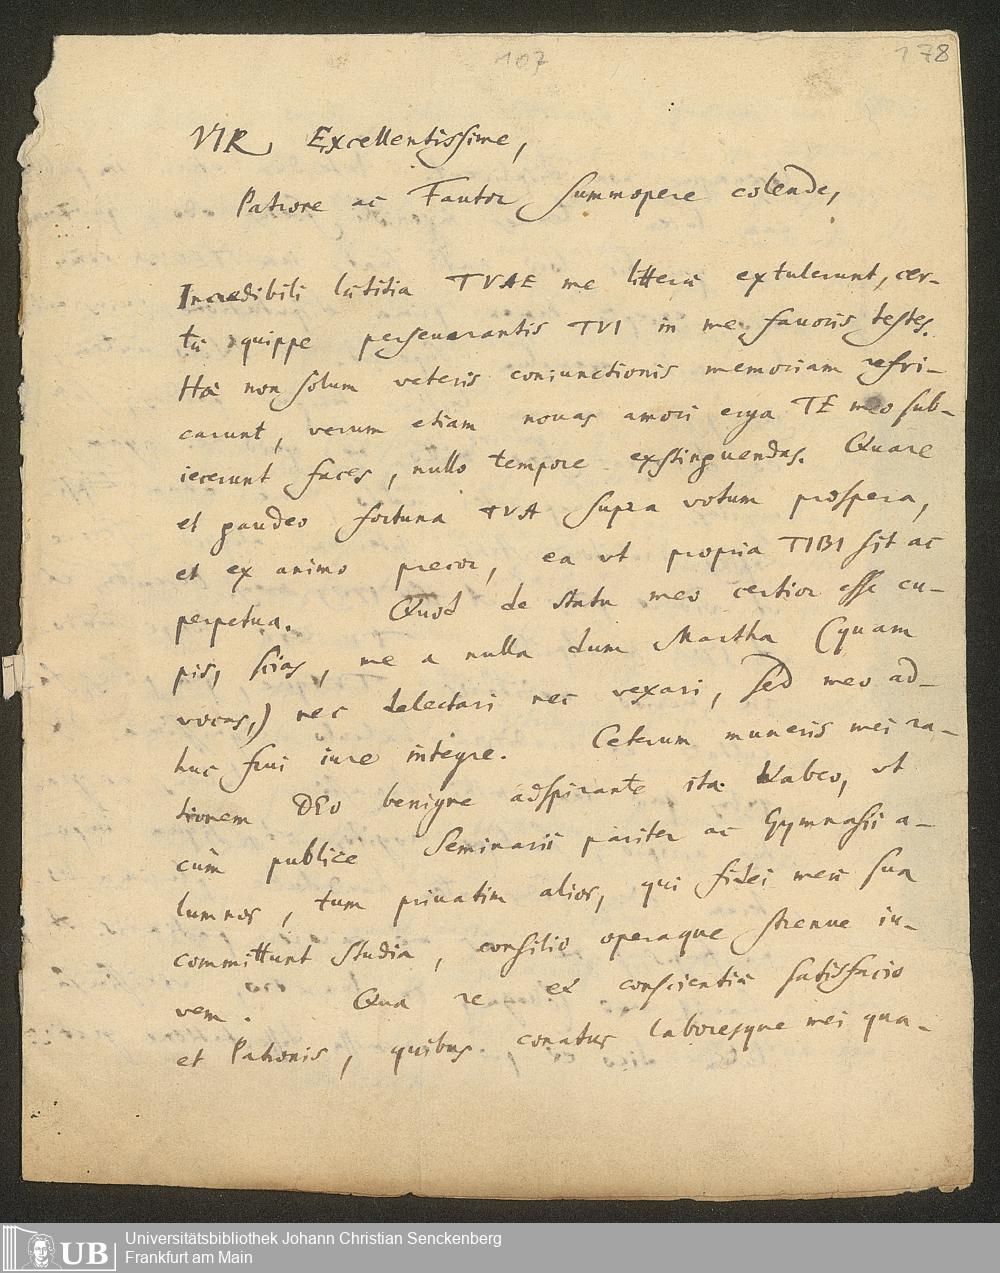 107
178
VIR Excellentissime,
Patrone ac Fautor summopere colende,
Incredibili lætitia TVAE me litteræ extulerunt, cer-
tæ quippe perseuerantis TVI in me fauoris testes.
Hæ non solum veteris coniunctionis memoriam refri-
carunt, verum etiam nouas amori erga TE meo sub-
iecerunt faces, nullo tempore exstinguendas. Quare
et gaudeo fortuna TVA supra votum prospera,
et ex animo precor, ea vt propria TIBI sit ac
perpetua. Quod de statu meo certior esse cu-
pis, scias, me a nulla dum Martha (quam
vocas,) nec delectari nec vexari, sed meo ad-
huc frui iure integre. Ceterum muneris mei ra-
tionem DEO benigne adspirante ita habeo, vt
cum publice Seminarii pariter ac Gymnasii a-
lumnos, tum priuatim alios, qui fidei meæ sua
committunt studia, consilio operaque strenue iu-
vem. Qua re et conscientiæ satisfacio
et Patronis, quibus conatus laboresque mei qua-
UB
Universitätsbibliothek Johann Christian Senckenberg
Frankfurt am Main